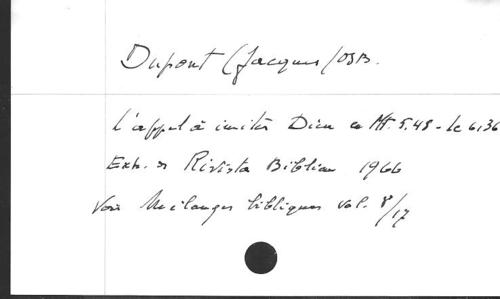 Dupont (Jacques) OSB.
L'appel à imiter Dieu en Mt. 5,48 - Lc 6,36
Extr. de Rivista Biblica 1966
Voir Mélanges bibliques vol. 8/17